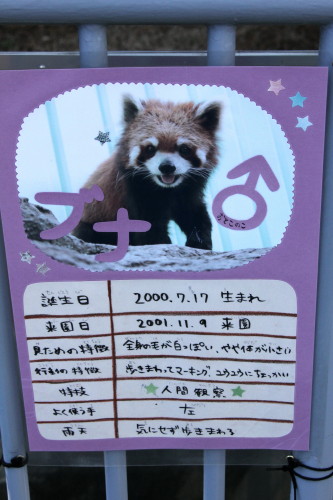 ブナ
おとこのこ
誕生日 2000.7.17 生まれ
来園日 2001.11.9 来園
見ための特徴 全身の毛が白っぽい、やや体が小さい
行動の特徴 歩きまわってマーキング、ユウユウにちょっかい
特技 人間観察
よく使う手 左
雨天 気にせず歩きまわる